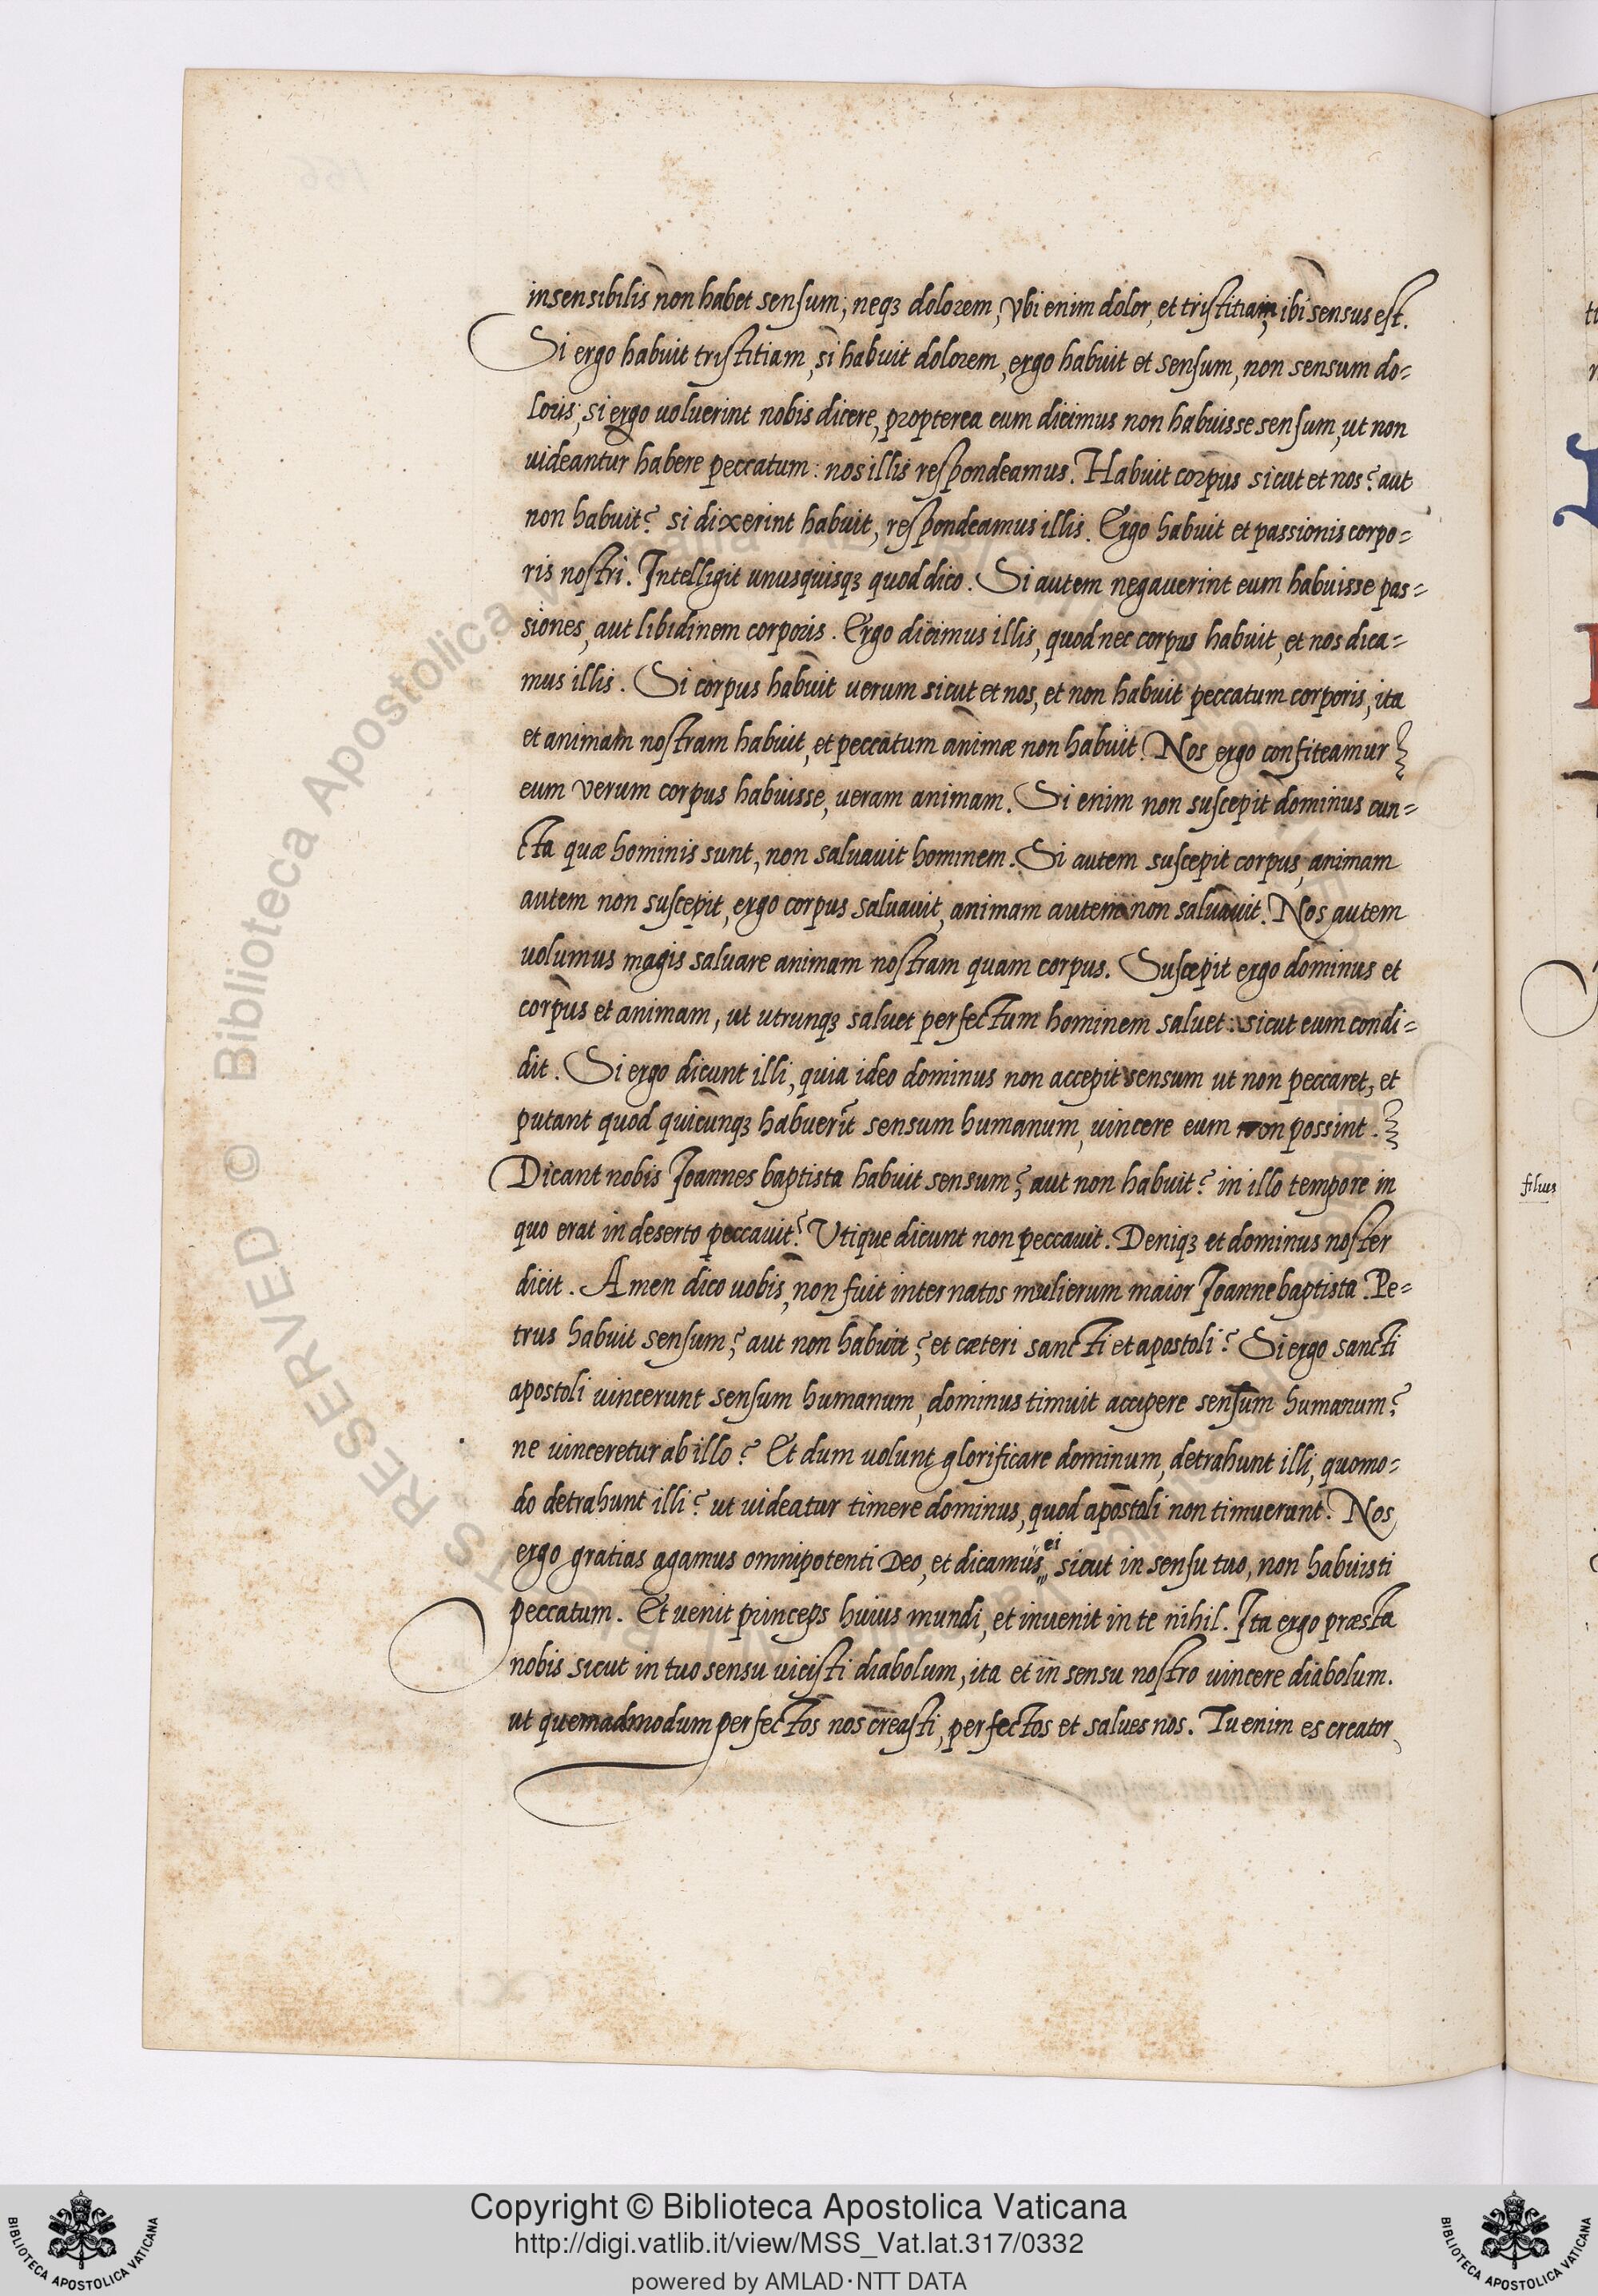 insensibilis non habet sensum; neqꝫ dolorem, vbi enim dolor, et tristitiam, ibi sensus est.
Si ergo habuit tristitiam, si habuit dolorem, ergo habuit et sensum, non sensum do=
loris; si ergo uoluerint nobis dicere, propterea eum dicimus non habuisse sensum, ut non
uideantur habere peccatum: nos illis respondeamus. Habuit corpus sicut et nos? aut
non habuit? si dixerint habuit, respondeamus illis. Ergo habuit et passionis corpo=
ris nostri. Intelligit unusquisqꝫ quod dico. Si autem negauerint eum habuisse pas=
siones, aut libidinem corporis. Ergo dicimus illis, quod nec corpus habuit, et nos dica=
mus illis. Si corpus habuit uerum sicut et nos, et non habuit peccatum corporis, ita
et animam nostram habuit, et peccatum animæ non habuit. Nos ergo confiteamur
eum verum corpus habuisse, ueram animam. Si enim non suscepit dominus cun=
cta quæ hominis sunt, non saluauit hominem. Si autem suscepit corpus, animam
autem non suscepit, ergo corpus saluauit, animam autem non saluauit. Nos autem
uolumus magis saluare animam nostram quam corpus. Suscepit ergo dominus et
corpus et animam, ut utrunqꝫ saluet perfectum hominem saluet: sicut eum condi=
dit. Si ergo dicunt illi, quia ideo dominus non accepit sensum ut non peccaret, et
putant quod quicunqꝫ habuerīt sensum humanum, uincere eum non possint.
Dicant nobis Joannes baptista habuit sensum? aut non habuit? in illo tempore in
quo erat in deserto peccauit? Vtique dicunt non peccauit. Deniqꝫ et dominus noster
dicit. Amen dico uobis, non fuit inter natos mulierum maior Joanne baptista. Pe=
trus habuit sensum? aut non habuit? et cæteri sancti et apostoli? Si ergo sancti
apostoli uincerunt sensum humanum, dominus timuit accipere sensum humanum?
ne uinceretur ab illo? Et dum uolunt glorificare dominum, detrahunt illi, quomo=
do detrahunt illi? ut uideatur timere dominus, quod apostoli non timuerunt. Nos
ergo gratias agamus omnipotenti Deo, et dicamus ei sicut in sensu tuo, non habuisti
peccatum. Et uenit princeps huius mundi, et inuenit in te nihil. Ita ergo præsta
nobis sicut in tuo sensu uicisti diabolum, ita et in sensu nostro uincere diabolum.
ut quemadmodum perfectos nos creasti, perfectos et salues nos. Tu enim es creator
filius
Copyright © Biblioteca Apostolica Vaticana
http://digi.vatlib.it/view/MSS_Vat.lat.317/0332
powered by AMLAD·NTT DATA
BIBLIOTECA APOSTOLICA VATICANA
BIBLIOTECA APOSTOLICA VATICANA